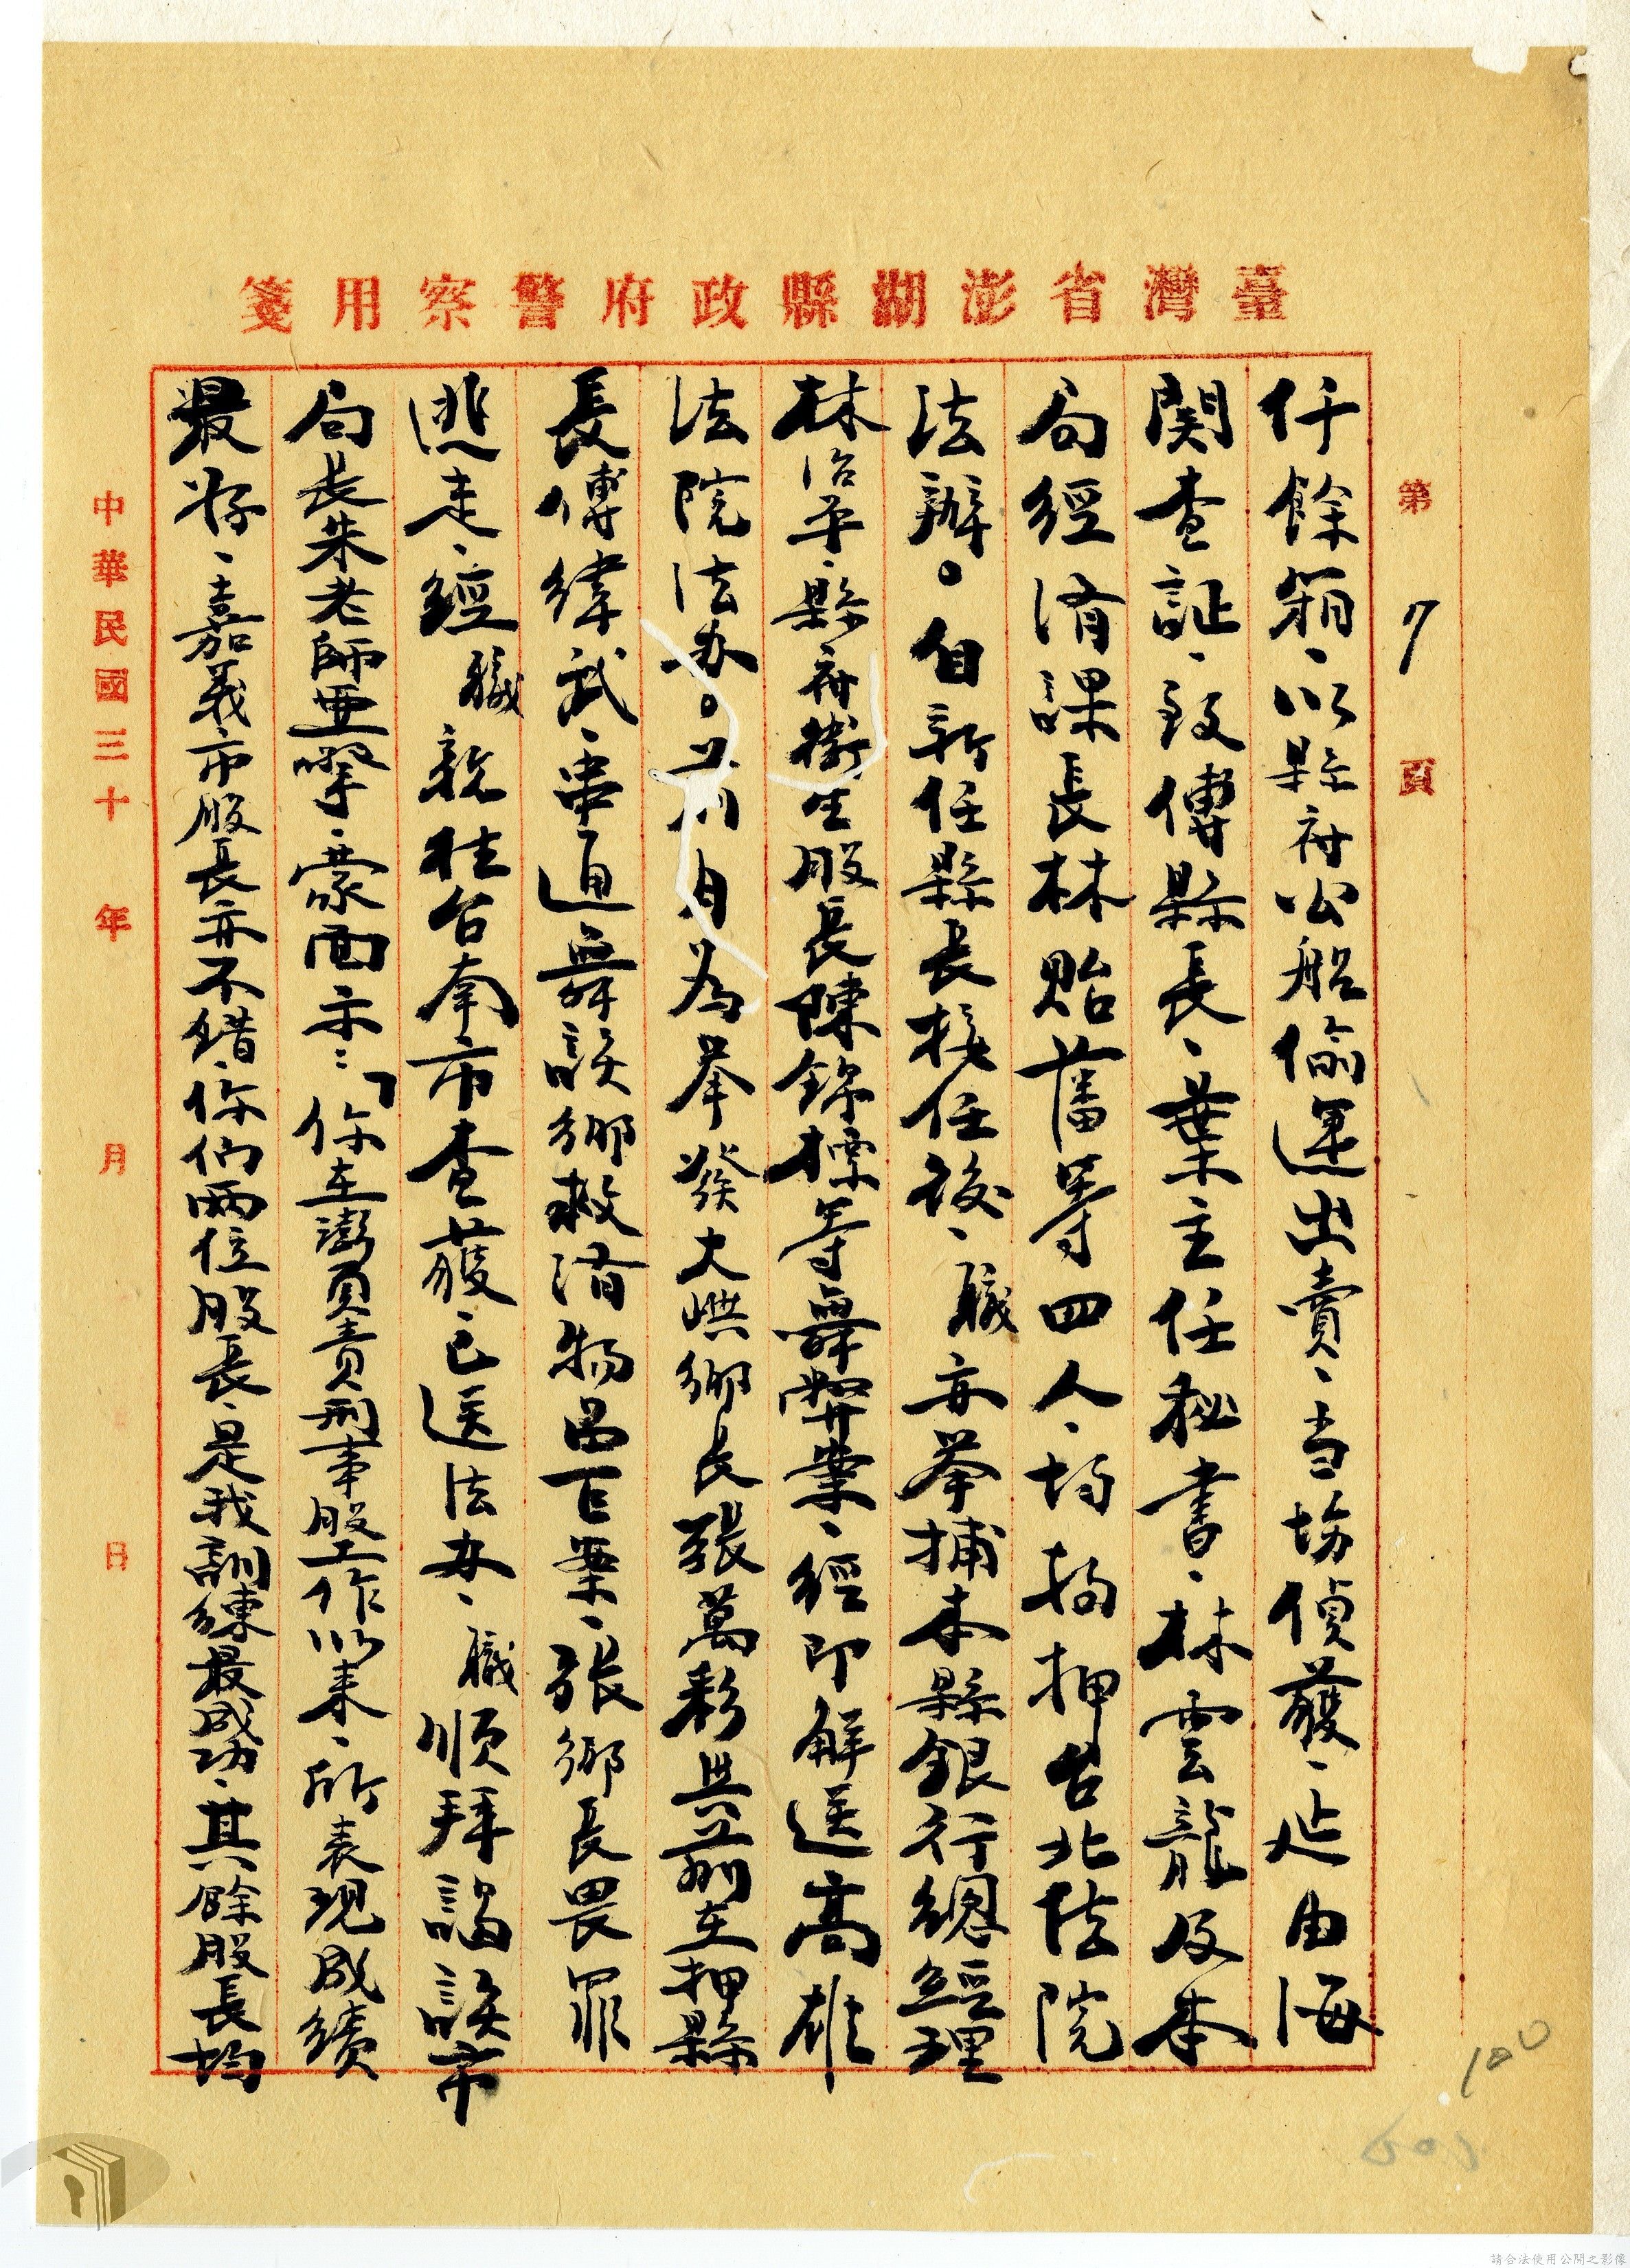 臺灣省澎湖縣政府警察用箋
第7頁
仟餘箱、以縣府公船偷運出賣、当場偵獲、延由海
関查証、致傅縣長、葉主任秘書、林雲龍及本
局經濟課長林貽蕃等四人、均拘押台北法院
法辦。自新任縣長接任後、職亦举捕本縣銀行總經理
林治平、縣府衛生股長陳錦標等舞弊案、經即解送高雄
法院法办。前月為举發大嶼鄉長張萬彩與前在押縣
長傅緯武、串通舞誤鄉救濟物品百案、張鄉長畏罪
逃走、經職親往台南市查獲、已送法办、職順拜謁該市
局長朱老師亜擘、蒙面示：「你在澎負責刑事股工作以来、所表現成績
最好、嘉義市股長亦不錯、你們兩位股長、是我訓練最成功、其餘股長均
中華民國三十年月日
100
請合法使用公開之影像